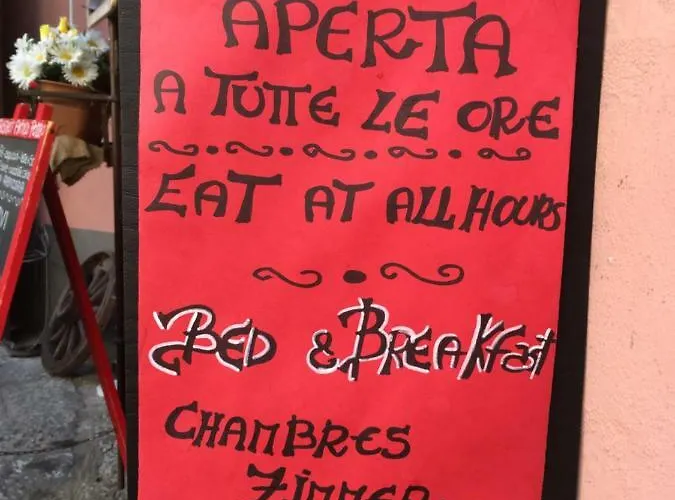 APERTA
A TUTTE LE ORE
EAT AT ALL HOURS
BED & BREAKFAST
CHAMBRES
ZIMMER